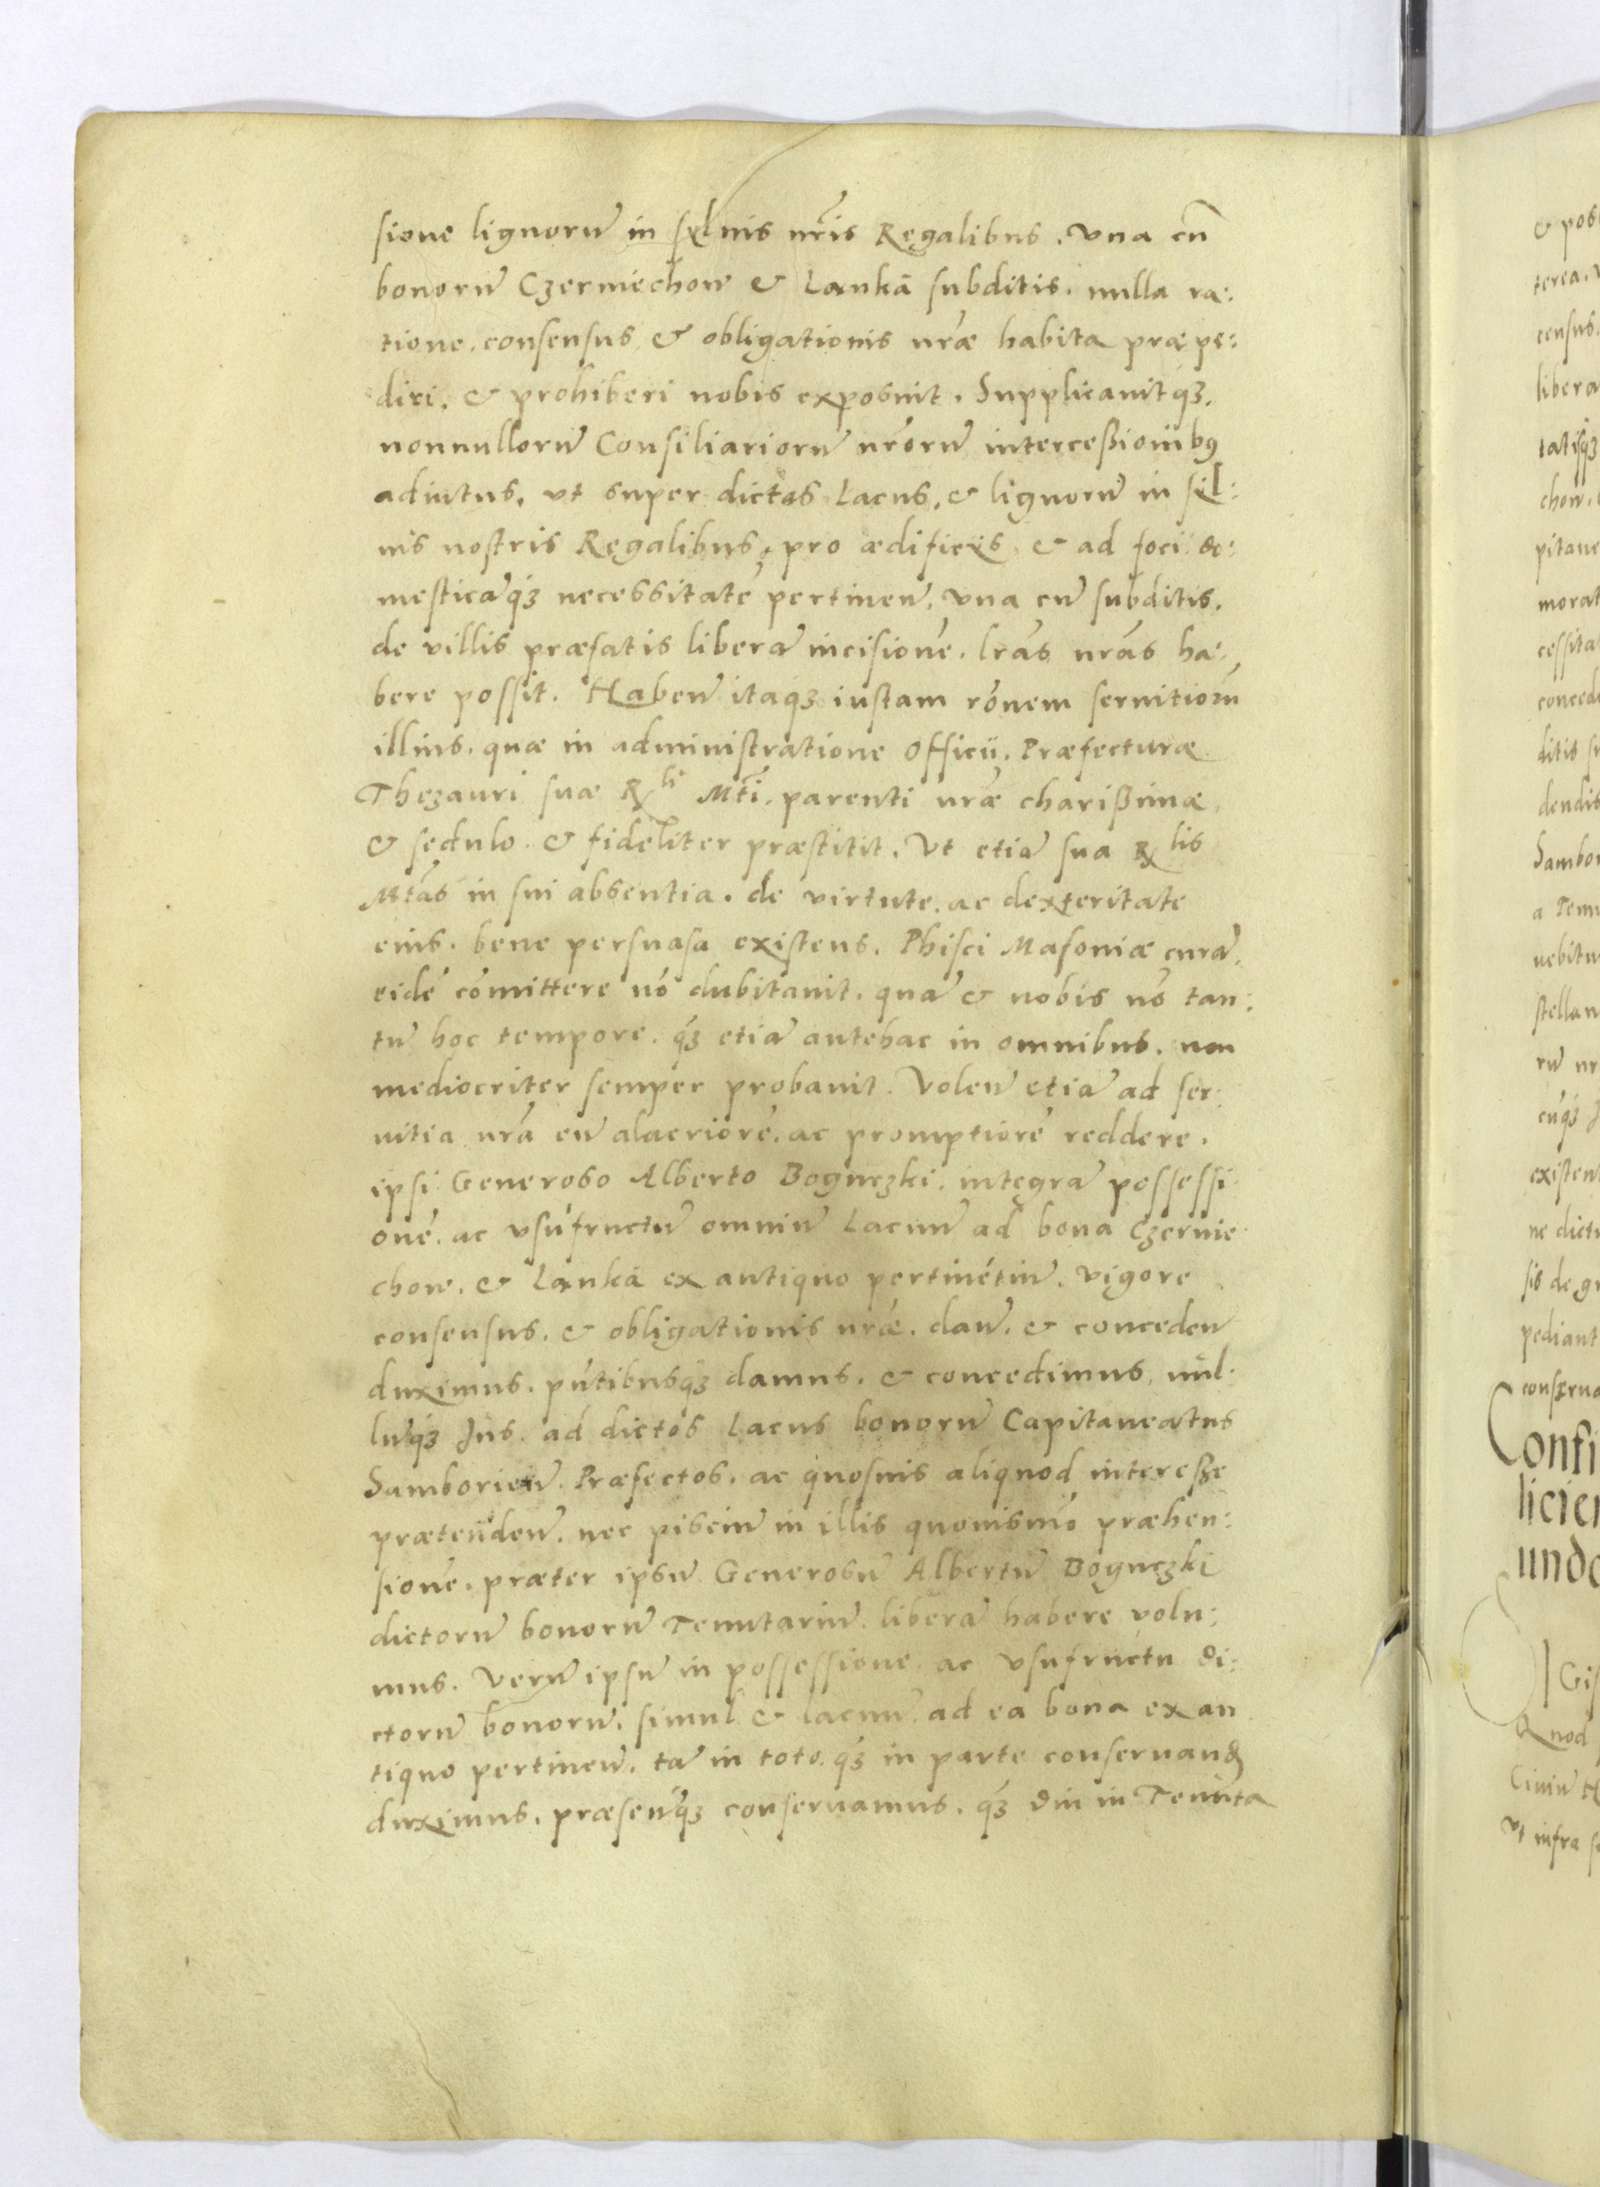 sione lignorū in syluis nr̄is Regalibus. Vna cū
bonorū Czerniechow & Lankā subditis. nulla ra:
tione. consensus & obligationis nr̄æ habita præpe:
diri. & prohiberi nobis exposuit. Supplicauitq̃ʒ.
nonnullorū Consiliariorū nr̄orū interceßionibꝰ
adiutus, vt super dictos Lacus, & lignorū in syl:
uis nostris Regalibus, pro ædificijs & ad foci do:
mesticāq̃ʒ necessitatē pertineñ, Vna cū subditis.
de villis præfatis liberā incisionē. lr̄as nr̄as ha:
bere possit. Habeñ itaq̃ʒ iustam rōnem seruitiorū
illius. quæ in administratione officij. Præfecturæ
Thezauri suæ R. li Mt̄i. parenti nr̄æ charißimæ
& sedulo. & fideliter præstitit. Vt etiā sua R. lis
Mt̄as in sui absentia. de virtute. ac dexteritate
eius. bene persuasa existens. Phisci Masouiæ curā.
eidē cōmittere nō dubitauit. quā & nobis nō tan:
tū hoc tempore. q̃ʒ etiā antehac in omnibus. non
mediocriter semper probauit. Voleñ etiā ad ser:
uitia nr̄a eū alacriorē. ac promptiorē reddere.
ipsi Generoso Alberto Boguczki. integrā possessi:
onē. ac vsūfructū omniū Lacuū ad bona Czernie
chow. & Lankā ex antiquo pertinētiū. vigore
consensus. & obligationis nr̄æ. dañ. & concedeñ
duximus. pn̄tibusq̃ʒ damus. & concedimus. nul:
lūq̃ʒ Jus. ad dictos Lacus bonorū Capitaneatus
Samborieñ. Præfectos. ac quosuis aliquod intereße
prætendeñ. nec pisciū in illis quouismō præhen:
sionē. præter ipsū Generosū Albertū Boguczki
dictorū bonorū Tenutariū. liberā habere volu:
mus. Verū ipsū in possessione ac vsufructu di:
ctorū bonorū. simul & lacuū ad ea bona ex an
tiquo pertineñ. tā in toto. q̃ʒ in parte conseruanđ
duximus. præseñq̃ʒ conseruamus. q̃ʒ diu in Tenuta
& pos
terea.
census.
libera
tatisq̃ʒ
chow.
pitane
morat
cessita
conced
ditis s
dendis
Sambor
a Tenu
uebitu
stellan
rū nr
cūq̃ʒ J
existen
ne dict
sis de gr
pediant
conserua
Confi
licie
unde
Gis
Quod
Ciuiū
vt infra s